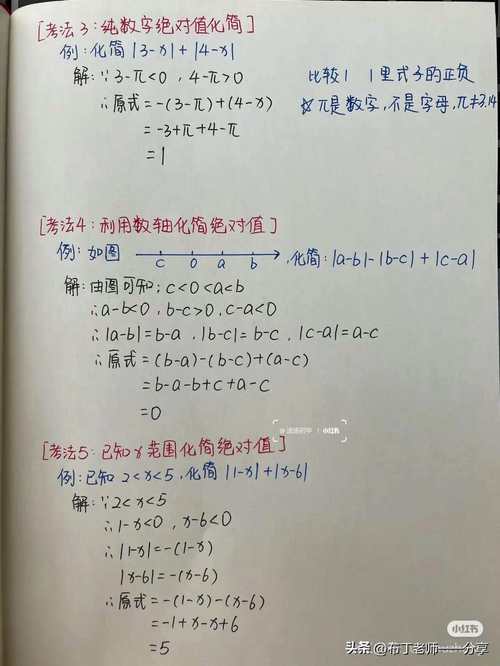 [考法3：纯数字绝对值化简]
例：化简 |3-π|+|4-π|
解：∵3-π<0，4-π>0
∴原式=-(3-π)+(4-π)
=-3+π+4-π
=1
比较| |里式子的正负
☆π是数字，不是字母，π≠3.14
[考法4：利用数轴化简绝对值]
例：如图 c 0 a b ，化简：|a-b|-|b-c|+|c-a|
解：由图可知：c<0<a<b
∴a-b<0，b-c>0，c-a<0
∴|a-b|=b-a，|b-c|=b-c，|c-a|=a-c
∴原式=(b-a)-(b-c)+(a-c)
=b-a-b+c+a-c
=0
小红书
[考法5：已知x范围化简绝对值]
例：已知 2<x<5，化简 |1-x|+|x-6|
解：∵2<x<5
∴1-x<0，x-6<0
∴|1-x|=-(1-x)
|x-6|=-(x-6)
∴原式=-(1-x)-(x-6)
=-1+x-x+6
=5
小红书
头条 @布丁老师一分享